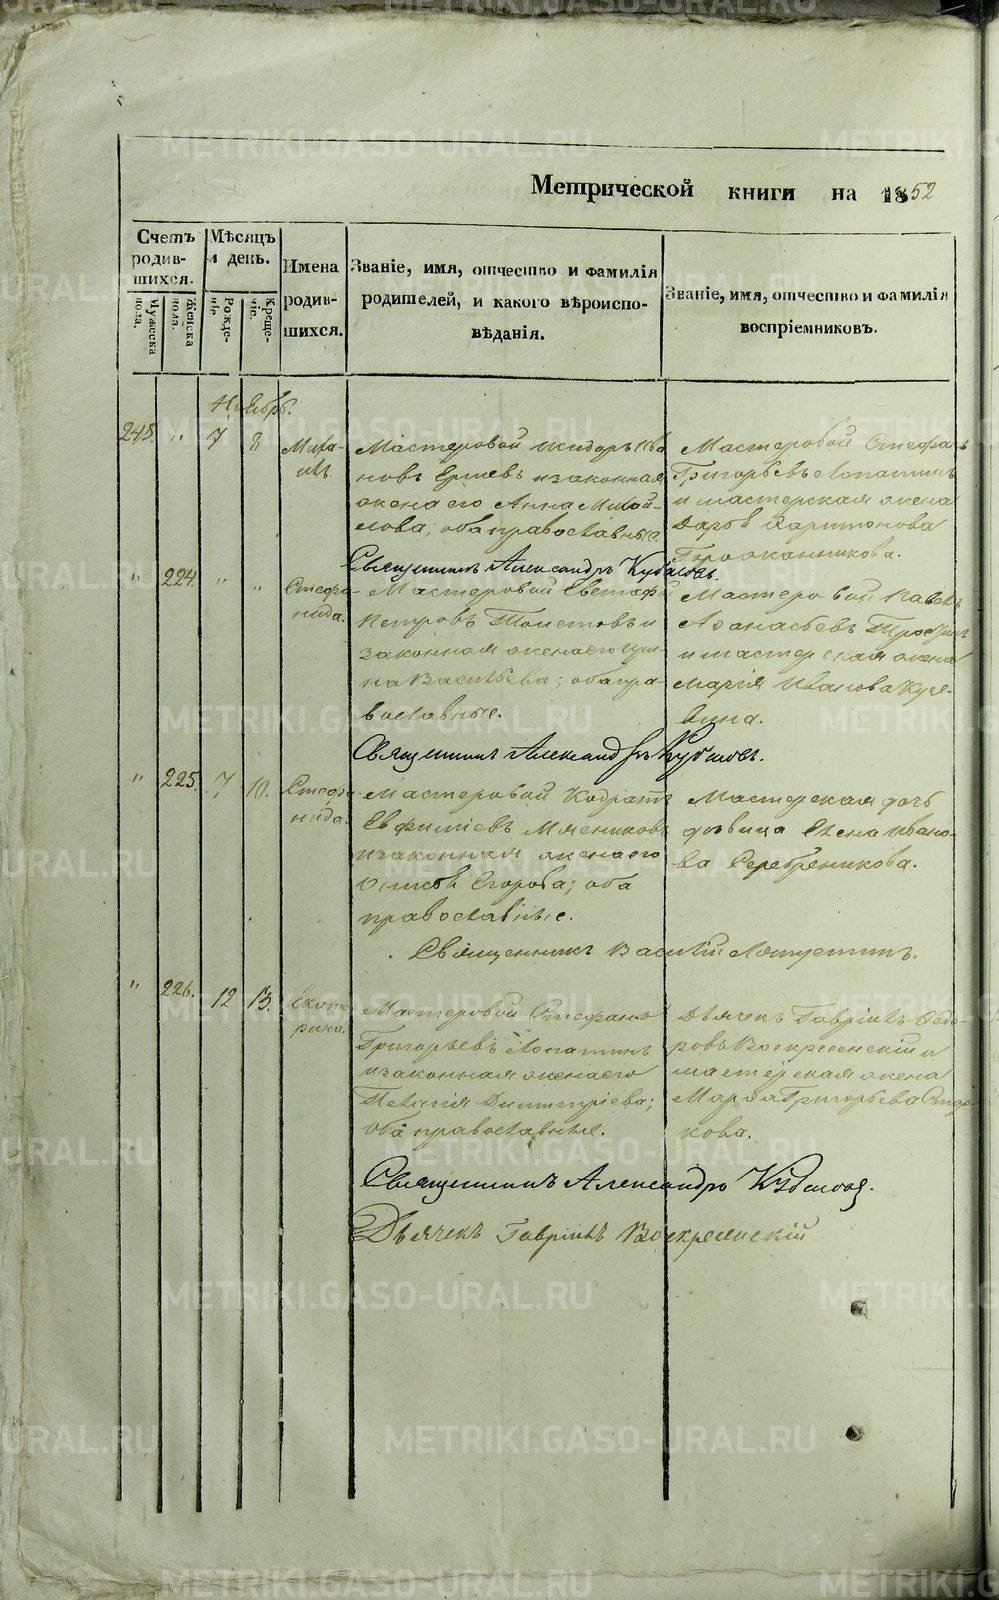 METRIKI.GASO-URAL.RU
Метрической книги на 1852
Счетъ родившихся.
Мужеска пола.
Женска пола.
Мѣсяцъ и день.
Рожденіе.
Крещеніе.
Имена родившихся.
Званіе, имя, отчество и фамилія
родителей, и какого вѣроиспо-
вѣданія.
Званіе, имя, отчество и фамилія
воспріемниковъ.
Ноябрь.
248. " 7 8
Миха-
илъ.
Мастеровой Исидоръ Ива
новъ Ершевъ и законная
жена его Анна Михай-
лова; оба православные.
Мастеровой Стефанъ
Григорьевъ Лопатинъ
и мастерская жена
Дарья Харитонова
Священникъ Александръ Кубасовъ.
" 224. " "
Стефа-
нида.
Мастеровой Евстафій
Петровъ Толстовъ и
законная жена его Ири-
на Васильева; оба пра-
вославные.
Мастеровой Павелъ
Афанасьевъ
и мастерская жена
Марія Иванова
Священникъ Александръ Кубасовъ.
" 225. 7 10.
Стефа-
нида.
Мастеровой Кодратъ
Евфиміевъ Мясниковъ
и законная жена его
Егорова; оба
православные.
Мастерская дочь
дѣвица Елена Ивано-
ва Серебреникова.
Священникъ Василій
" 226. 12 13.
Екате
рина.
Мастеровой Стефанъ
Григорьевъ Лопатинъ
и законная жена его
Пелагія Димитріева;
оба православные.
Дьячекъ Гавріилъ Ѳедо-
ровъ Воскресенскій и
мастерская жена
Марѳа Григорьева
Священникъ Александръ Кубасовъ.
Дьячекъ Гавріилъ Воскресенскій